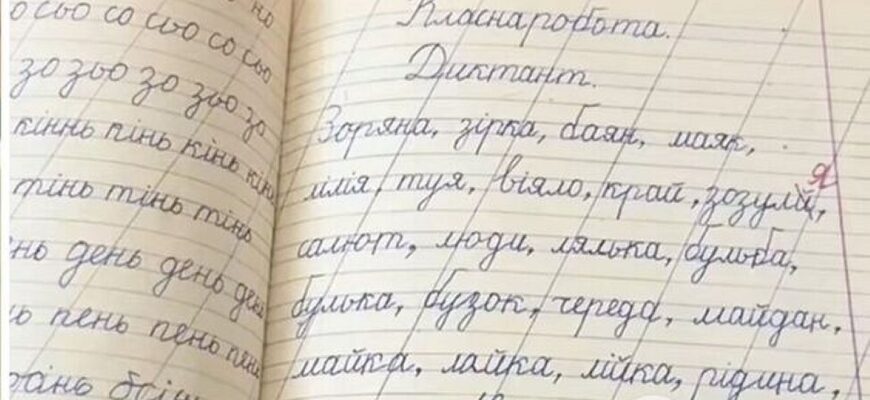 о сьо со сьо со сьо
зо зьо зо зьо зо
кіннь кінь кінь
тінь тінь тінь
день день
пень пень пень
Класна робота.
Диктант.
Зоряна, зірка, баян, маяк,
лілія, туя, віяло, край, зозуля,
я
салют, люди, лялька, бульба,
булька, бузок, череда, майдан,
майка, лайка, лійка, рідина,